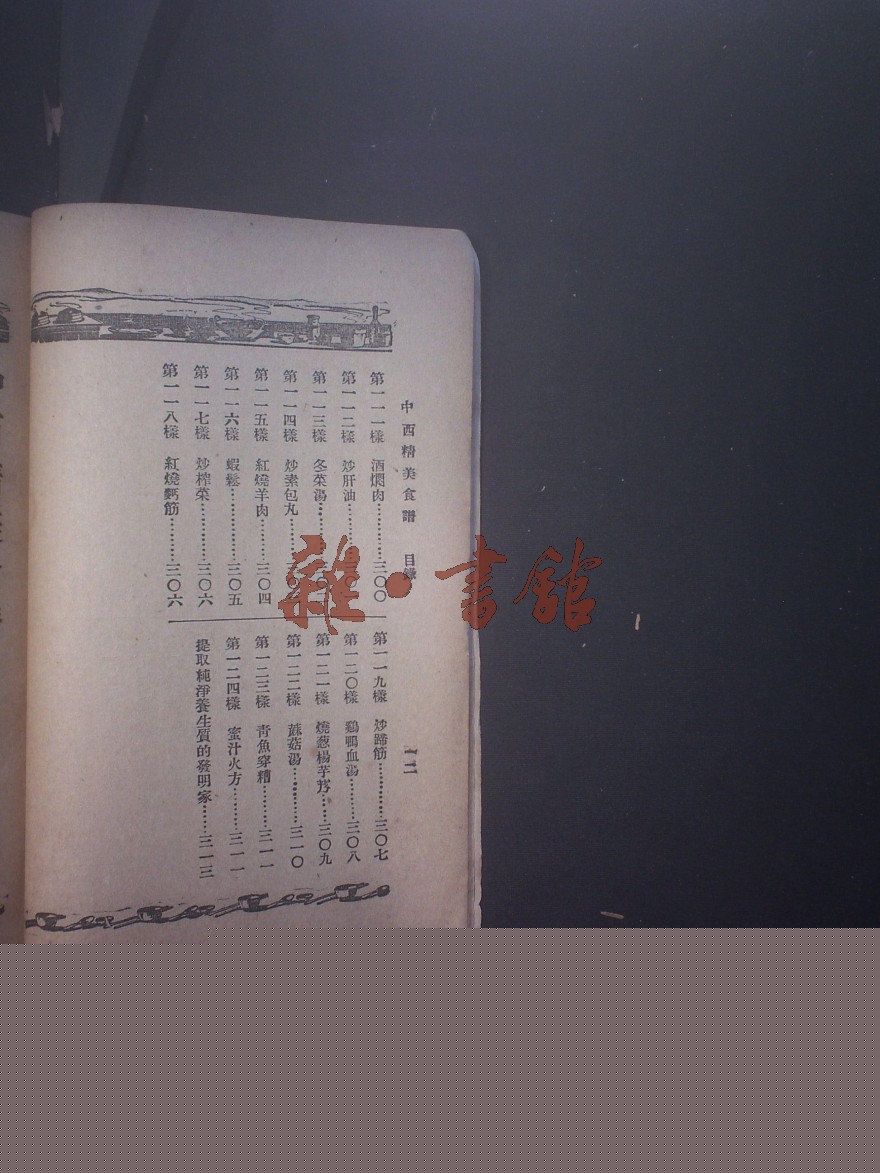 中西精美食譜 目錄 一二
第一一一樣 酒燜肉…………三〇〇
第一一二樣 炒肝油…………
第一一三樣 冬菜湯…………
第一一四樣 炒素包丸…………
第一一五樣 紅燒羊肉…………三〇四
第一一六樣 蝦鬆…………三〇五
第一一七樣 炒榨菜…………三〇六
第一一八樣 紅燒麪筋…………三〇六
第一一九樣 炒蹄筋…………三〇七
第一二〇樣 鷄鴨血湯…………三〇八
第一二一樣 燒葱楊芋艿……三〇九
第一二二樣 蔴菇湯…………三一〇
第一二三樣 青魚穿糟………三一一
第一二四樣 蜜汁火方………三一一
提取純淨養生質的發明家……三一三
雜·書舘